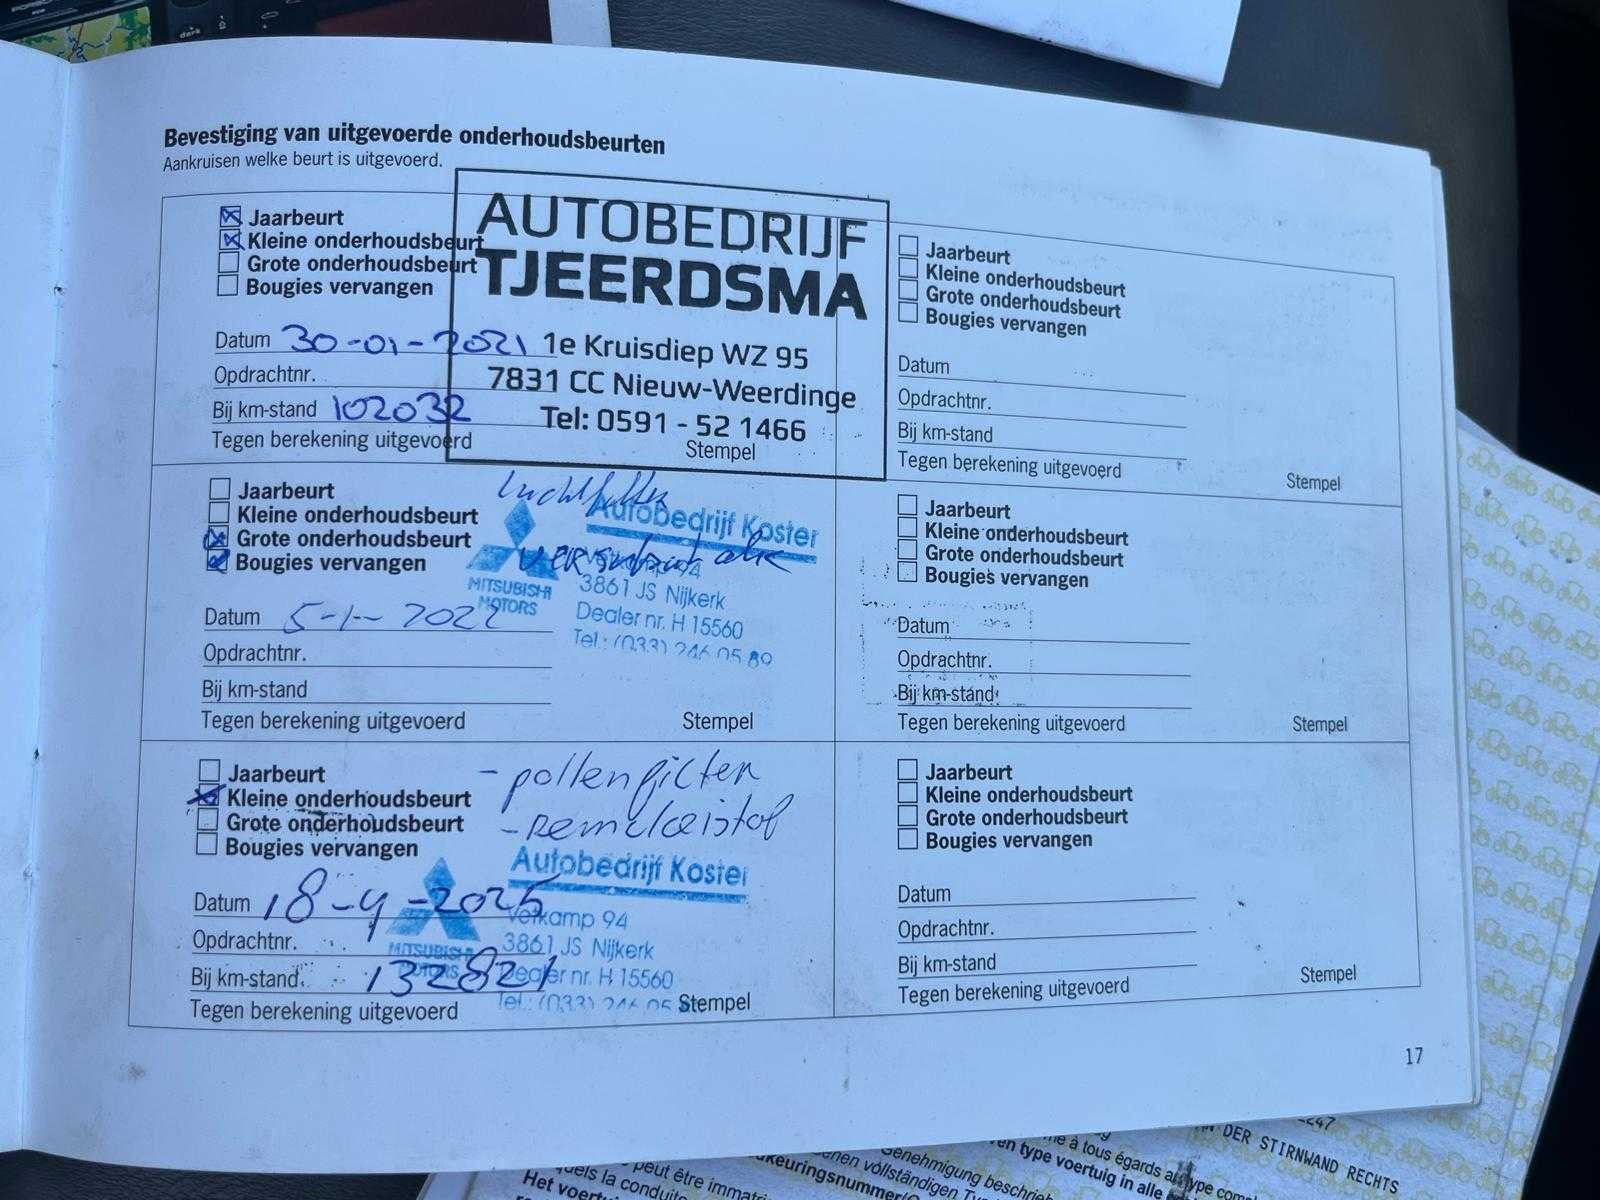 Bevestiging van uitgevoerde onderhoudsbeurten
Aankruisen welke beurt is uitgevoerd.
Jaarbeurt
Kleine onderhoudsbeurt
Grote onderhoudsbeurt
Bougies vervangen
Datum 30-01-2021
Opdrachtnr.
Bij km-stand 102032
Tegen berekening uitgevoerd
AUTOBEDRIJF
TJEERDSMA
1e Kruisdiep WZ 95
7831 CC Nieuw-Weerdinge
Tel: 0591 - 52 1466
Stempel
Jaarbeurt
Kleine onderhoudsbeurt
Grote onderhoudsbeurt
Bougies vervangen
Datum 5-1-2022
Opdrachtnr.
Bij km-stand
Tegen berekening uitgevoerd
luchtfilter
Autobedrijf Koster
MITSUBISHI
MOTORS
3861 JS Nijkerk
Dealer nr. H 15560
Tel.: (033) 246 05 89
Stempel
Jaarbeurt
Kleine onderhoudsbeurt
Grote onderhoudsbeurt
Bougies vervangen
Datum 18-4-2025
Opdrachtnr.
Bij km-stand 132821
Tegen berekening uitgevoerd
- pollenfilter
- remvloeistof
Autobedrijf Koster
MITSUBISHI
MOTORS
Vetkamp 94
3861 JS Nijkerk
Dealer nr. H 15560
Tel.: (033) 246 05
Stempel
Jaarbeurt
Kleine onderhoudsbeurt
Grote onderhoudsbeurt
Bougies vervangen
Datum
Opdrachtnr.
Bij km-stand
Tegen berekening uitgevoerd
Stempel
Jaarbeurt
Kleine onderhoudsbeurt
Grote onderhoudsbeurt
Bougies vervangen
Datum
Opdrachtnr.
Bij km-stand
Tegen berekening uitgevoerd
Stempel
Jaarbeurt
Kleine onderhoudsbeurt
Grote onderhoudsbeurt
Bougies vervangen
Datum
Opdrachtnr.
Bij km-stand
Tegen berekening uitgevoerd
Stempel
17
DER STIRNWAND RECHTS
à tous égards au type
en type voertuig in alle
Genehmigung
vollständigen
peut être
la
Het